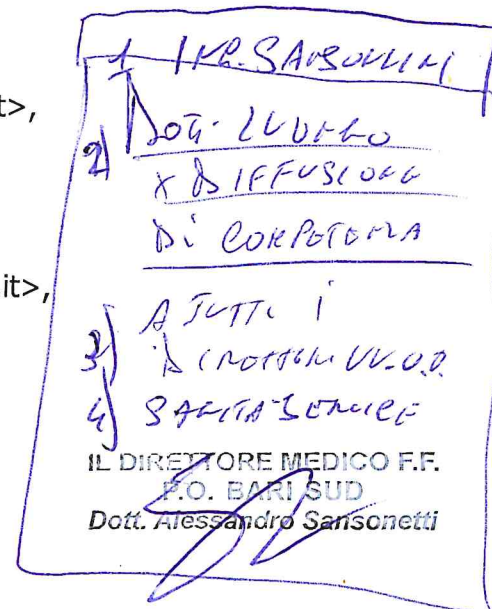 t>,
1 ING. SANSONETTI
2) DOTT.
X DIFFUSIONE
DI COMPETENZA
it>,
A TUTTI I
3) DIRETTORI UU.OO.
4) SANITASERVICE
IL DIRETTORE MEDICO F.F.
P.O. BARI SUD
Dott. Alessandro Sansonetti